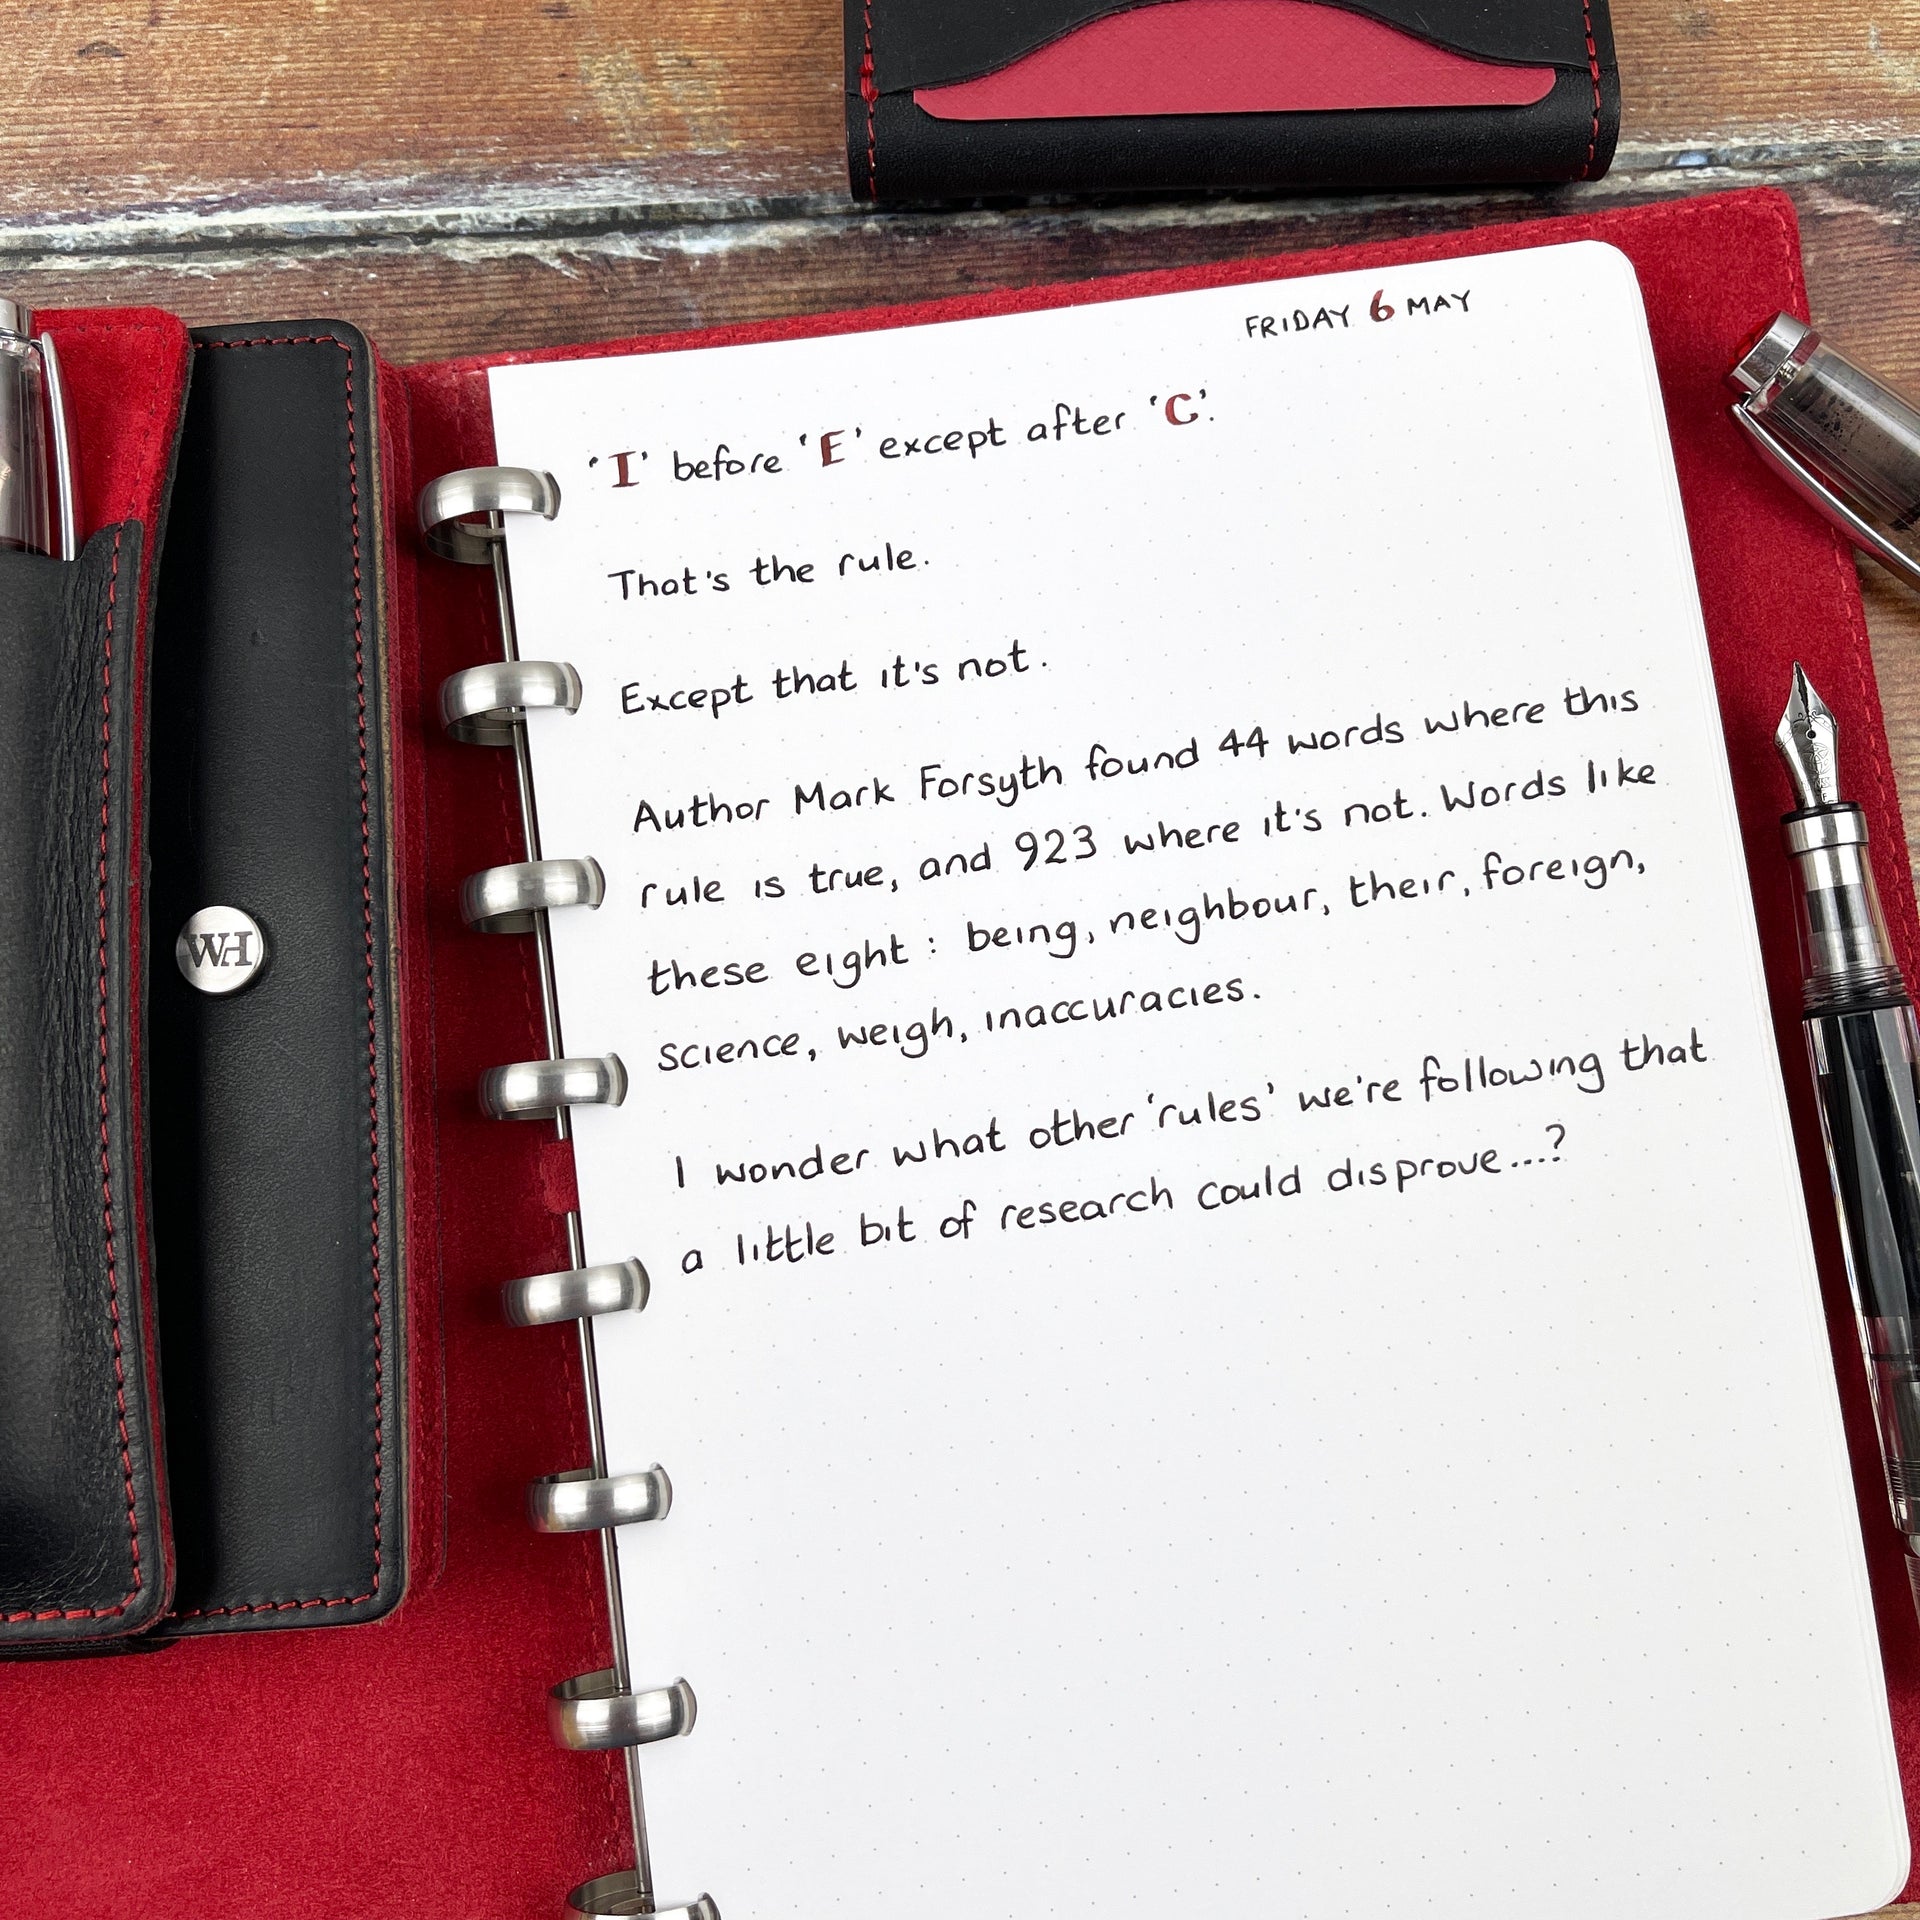 FRIDAY 6 MAY
'I' before 'E' except after 'C'.
That's the rule.
Except that it's not.
Author Mark Forsyth found 44 words where this
rule is true, and 923 where it's not. Words like
these eight: being, neighbour, their, foreign,
science, weigh, inaccuracies.
I wonder what other 'rules' we're following that
a little bit of research could disprove...?
WH